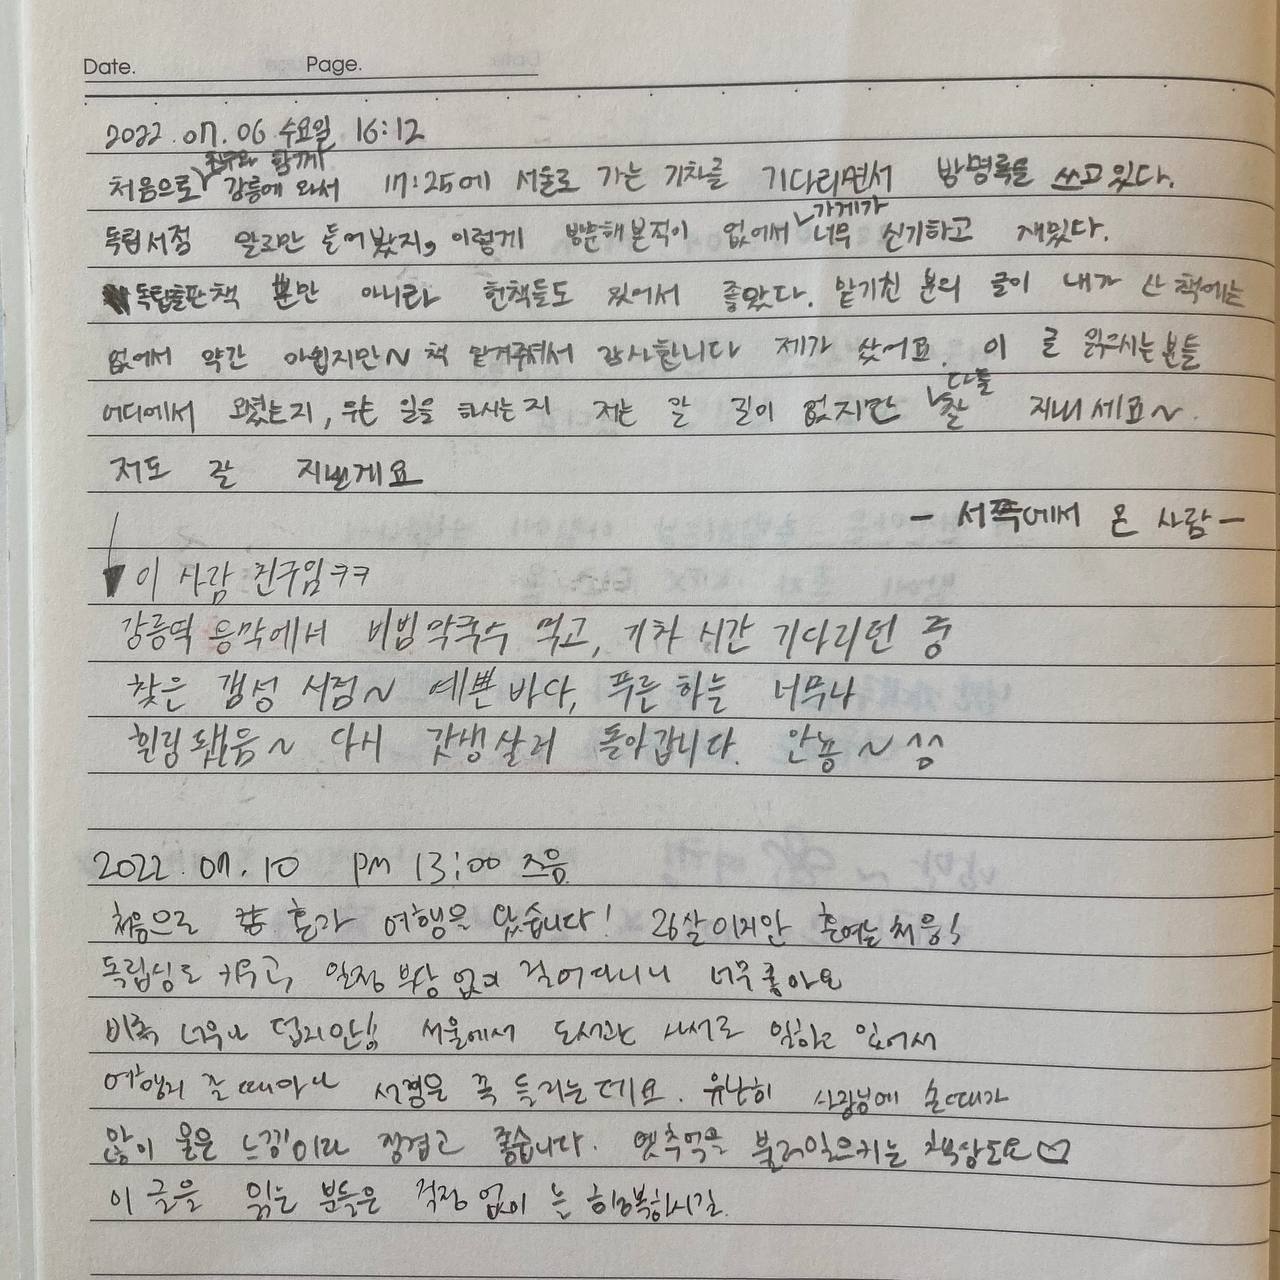 Date. Page.
2022.07.06 수요일 16:12
처음으로 친구와 함께 강릉에 와서 17:25에 서울로 가는 기차를 기다리면서 방명록을 쓰고 있다.
독립서점 말로만 들어봤지, 이렇게 방문해본적이 없어서 가게가 너무 신기하고 재밌다.
독립출판책 뿐만 아니라 헌책들도 있어서 좋았다. 맡기신 분의 글이 내가 산 책에는
없어서 약간 아쉽지만~ 책 맡겨주셔서 감사합니다 제가 샀어요. 이 글 읽으시는분들
어디에서 오셨는지, 무슨 일을 하시는지 저는 알 길이 없지만 다들 잘 지내세요~.
저도 잘 지낼게요
- 서쪽에서 온 사람 -
이 사람 친구임ㅋㅋ
강릉역 옹막에서 비빔막국수 먹고, 기차 시간 기다리던 중
찾은 갬성 서점~ 예쁜 바다, 푸른 하늘 너무나
힐링됐음~ 다시 갓생살러 돌아갑니다. 안뇽~ ^^
2022.07.10 PM 13:00 즈음
처음으로 혼자 여행을 왔습니다! 26살이지만 혼여는 처음!
독립심도 키우고, 일정 부담 없이 걸어다니니 너무좋아요
비록 너무나 덥지만!! 서울에서 도서관 사서로 일하고 있어서
여행지 갈 때마다 서점을 꼭 들리는데요. 유난히 사장님에 손때가
많이 묻은 느낌이라 정겹고 좋습니다. 옛추억을 불러일으키는 책상도요♡
이 글을 읽는 분들은 걱정 없이 늘 행복하시길.